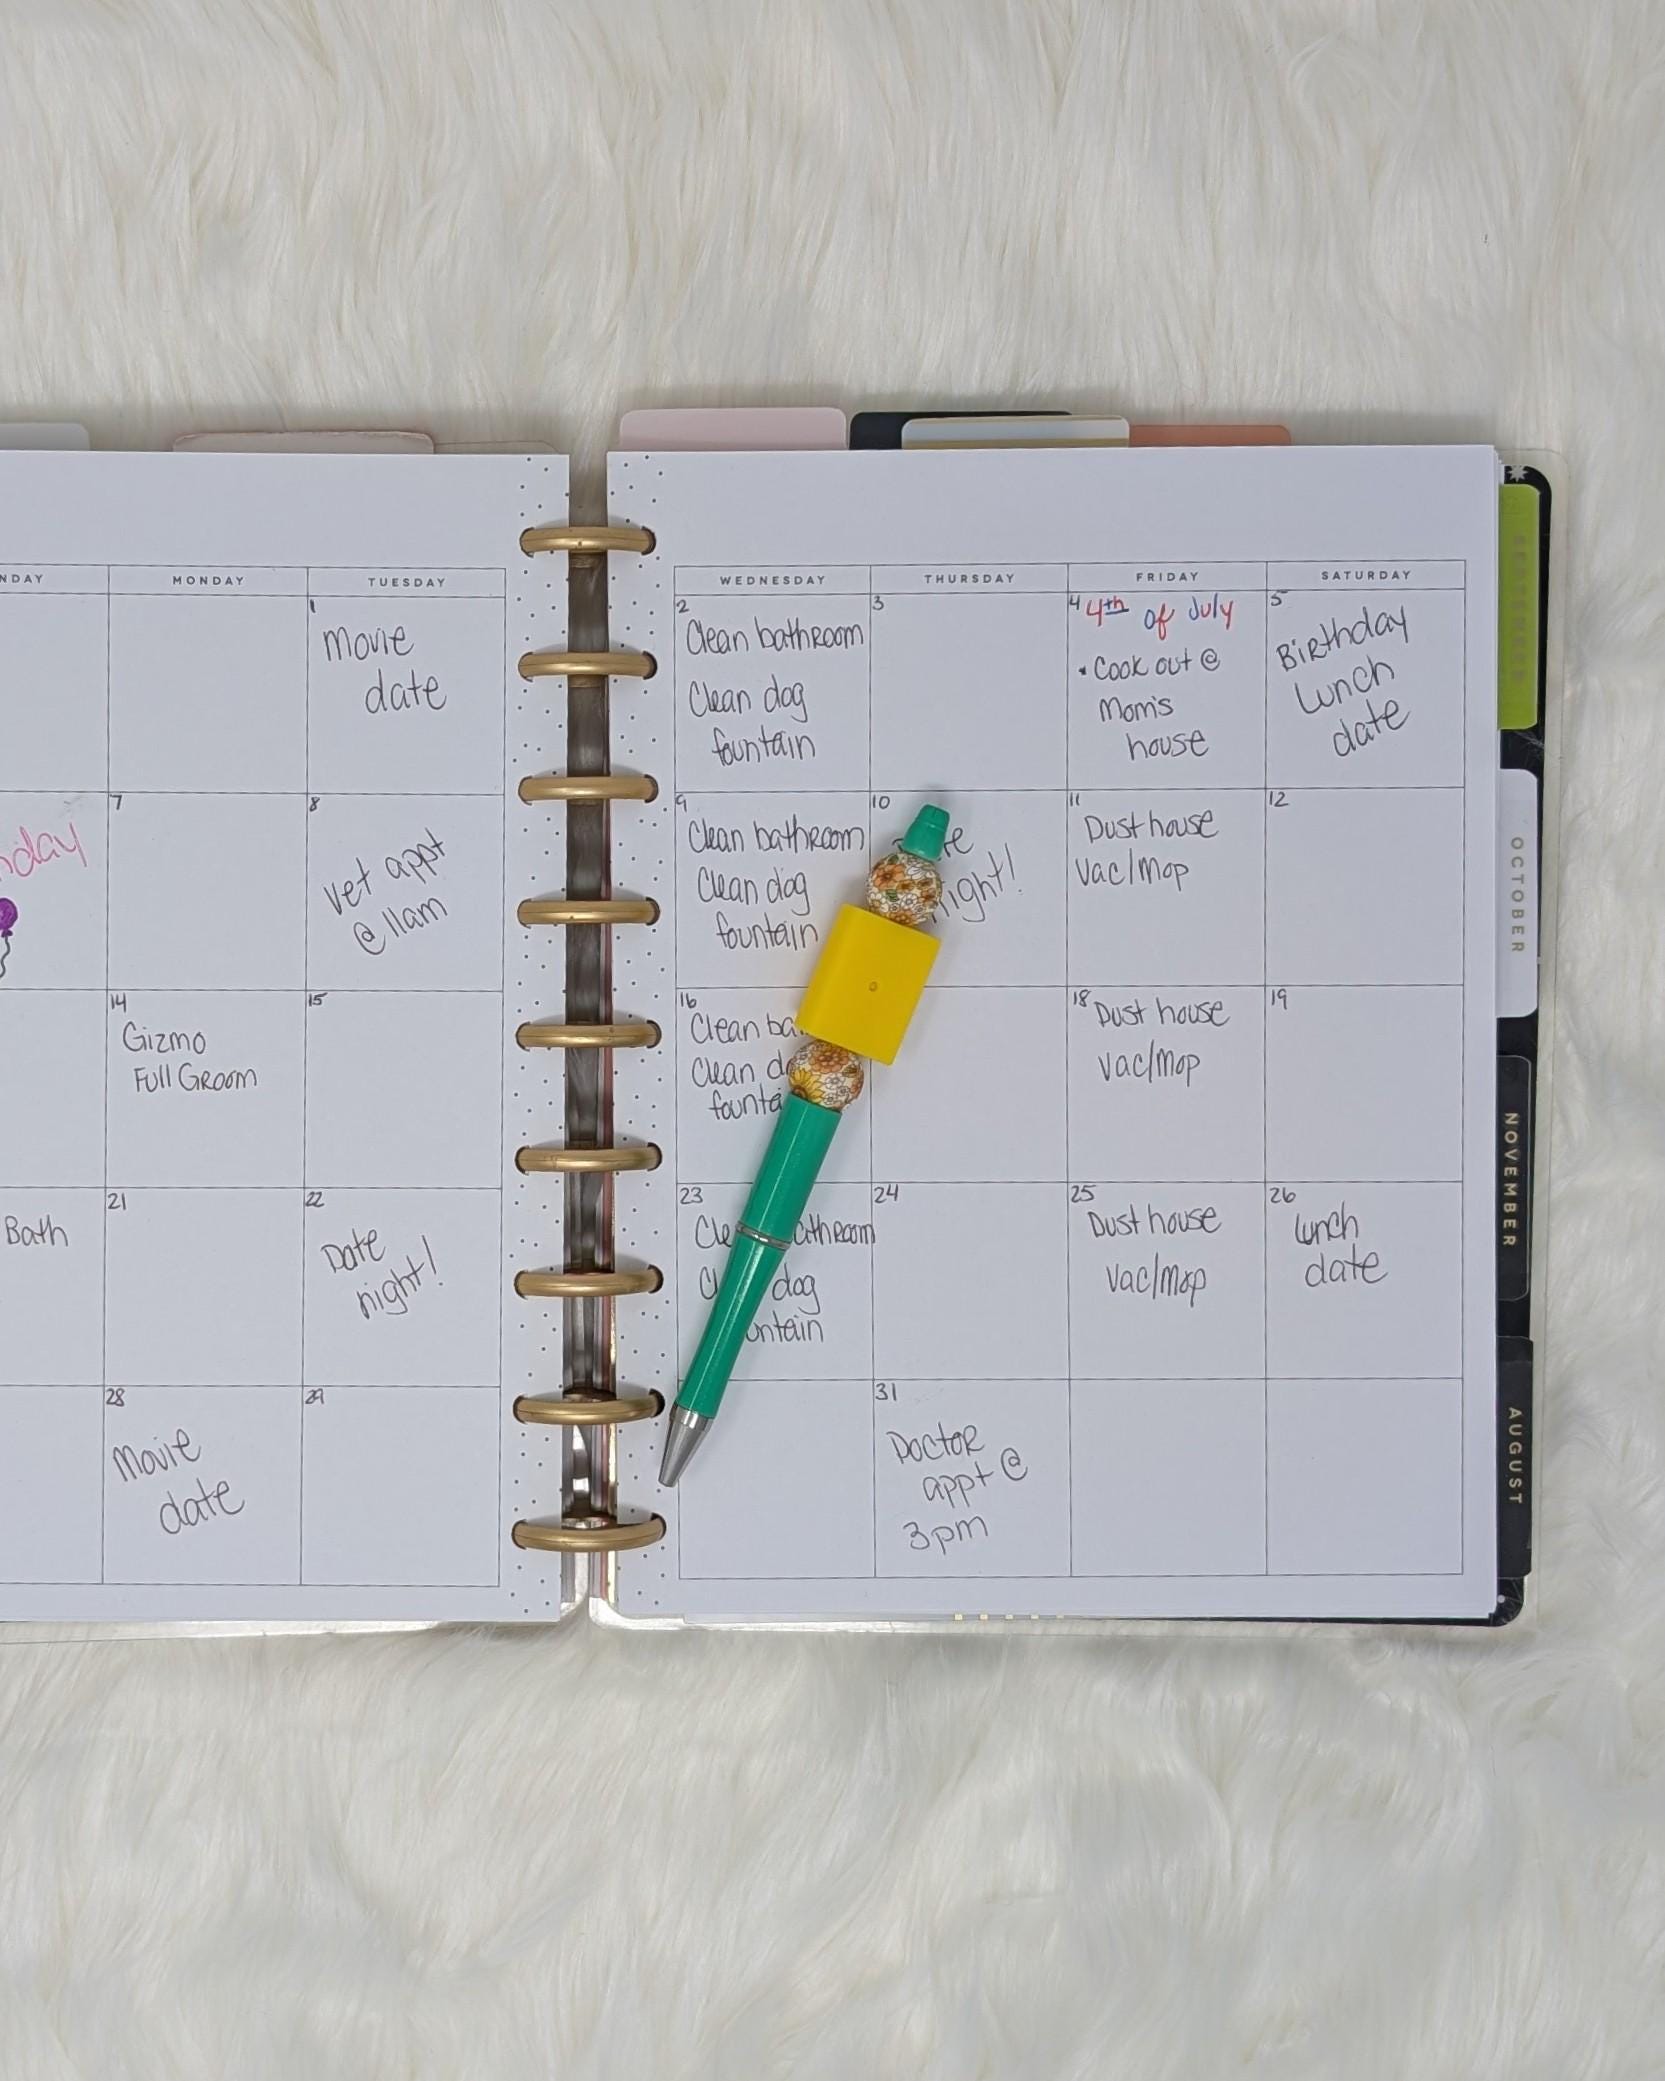 MONDAY
TUESDAY
WEDNESDAY
THURSDAY
FRIDAY
SATURDAY
1
Movie
date
2
Clean bathroom
Clean dog
fountain
3
4
4th of July
• Cook out @
Mom's
house
5
Birthday
Lunch
date
7
8
Vet appt
@ 11am
9
Clean bathroom
Clean dog
fountain
10
night!
11
Dust house
Vac/Mop
12
14
Gizmo
Full Groom
15
16
Clean
Clean
18
Dust house
Vac/Mop
19
Bath
21
22
Date
night!
23
dog
24
25
Dust house
Vac/Mop
26
Lunch
date
28
Movie
date
29
31
Doctor
appt @
3pm
SEPTEMBER
OCTOBER
NOVEMBER
AUGUST